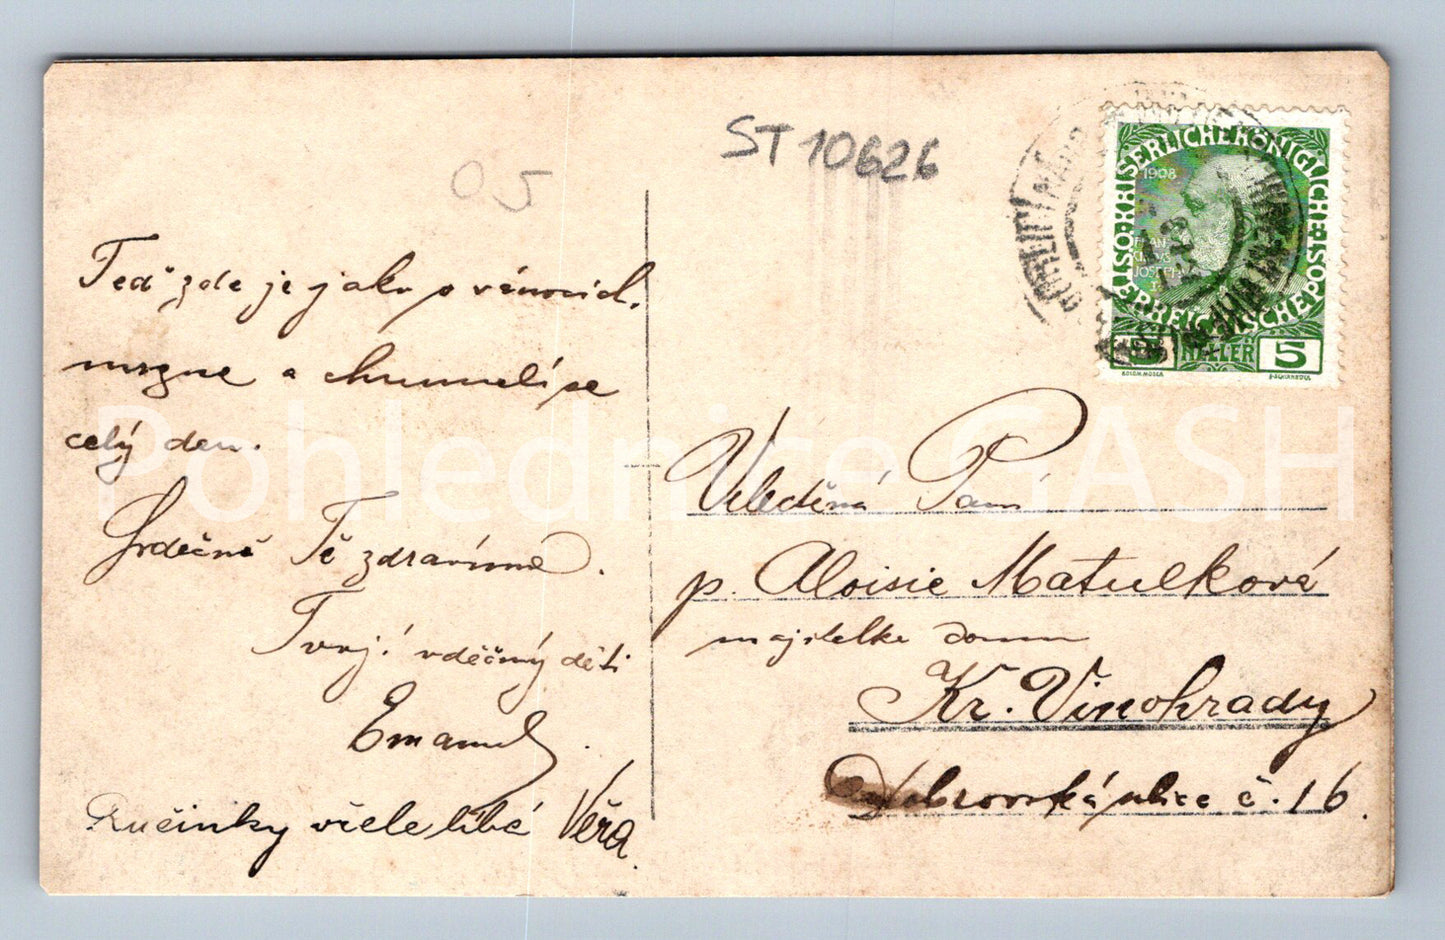 ST 10626
05
Teď zde je jako o vánocích,
mrzne a chumelí se
celý den.
Srdečně Tě zdravíme.
Tvoji vděčný děti
Emanuel.
Ručinky vřele líbá Věra.
KAISERLICHE KÖNIGLICHE ÖSTERREICHISCHE POST
1908
FRANZ
JOSEPH
5 HELLER 5
KOLOM. MOSER
F. SCHIRNBÖCK
Velectěná Paní
p. Aloisie Matulková
majitelka domu
Kr. Vinohrady
ulice č. 16.
Pohlednice GASH